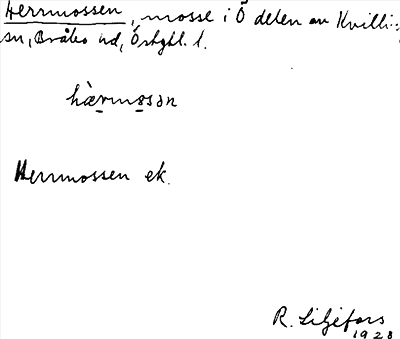 Herrmossen, mosse i Ö delen av Kvilli:
sn, Bråbo hd, Östgtl. l.
hærmosən
Herrmossen ek.
R. Liljefors
1928